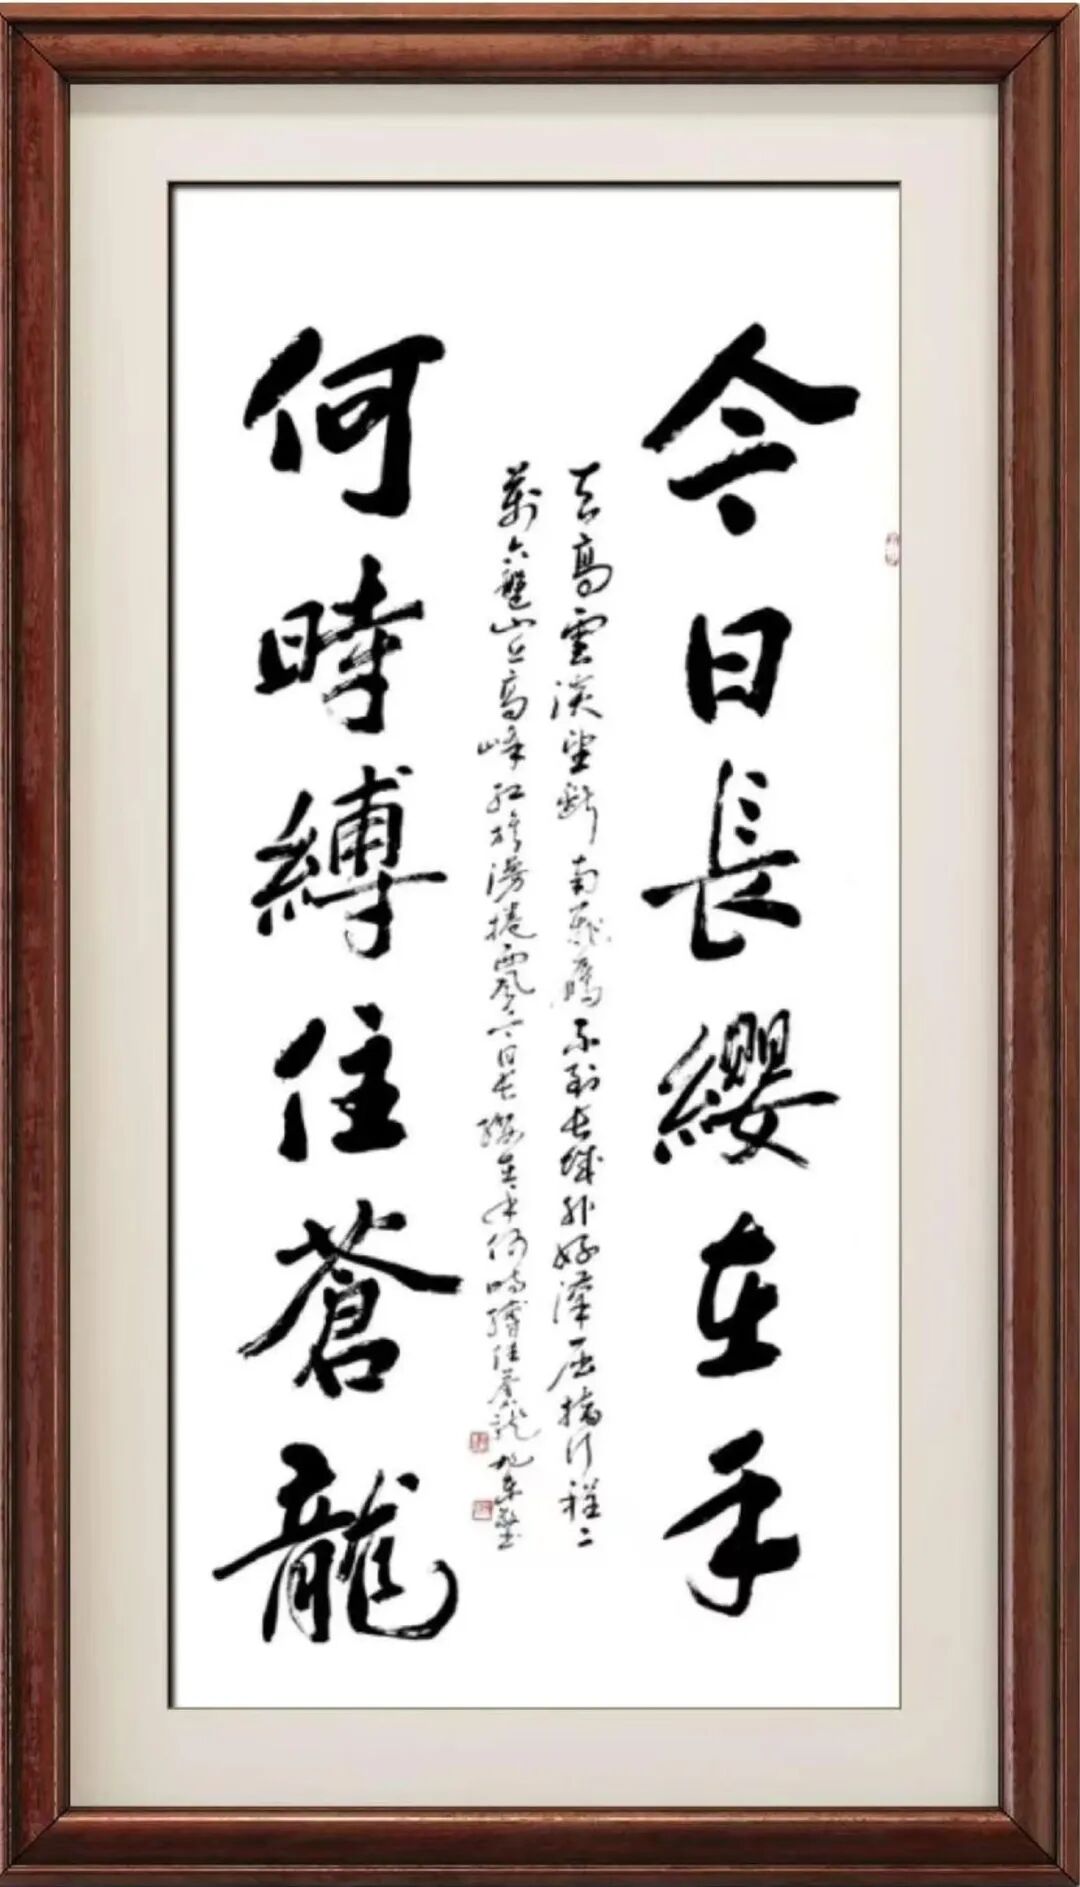 今日長纓在手
天高雲淡望斷南飛雁不到長城非好漢屈指行程二
萬六盤山上高峰紅旗漫捲西風今日長纓在手何時縛住蒼龍
何時縛住蒼龍